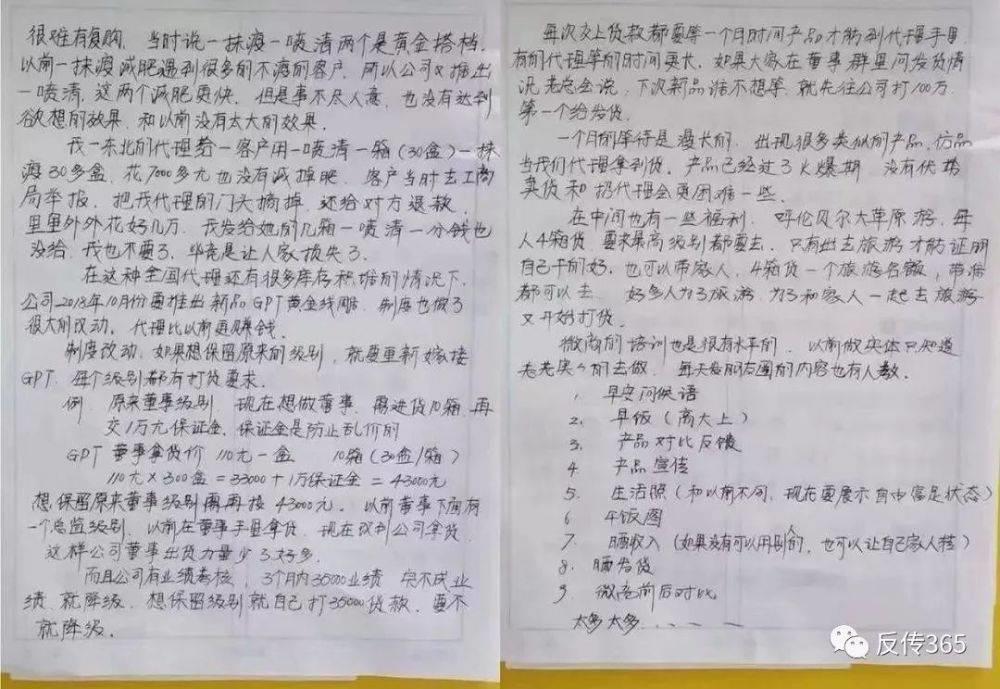 很难有复购，当时说一抹瘦一喷清两个是黄金搭档，
以前一抹瘦减肥遇到很多的不瘦的客户，所以公司又推出
一喷清，这两个减肥更快，但是事不尽人意，也没有达到
欲想的效果，和以前没有太大的效果。
我一东北的代理给一客户用一喷清一箱（30盒）一抹
瘦30多盒，花7000多元也没有减掉肥，客户当时去工商
局举报，把我代理的门头摘掉，还给对方退款，
里里外外花好几万，我发给她的几箱一喷清一分钱也
没给，我也不要了，毕竟是让人家损失了。
在这种全国代理还有很多库存积培的情况下，
公司2018年10月份要推出新品GPT黄金线雕，制度也做了
很大的改动，代理比以前更赚钱。
制度改动：如果想保留原来的级别，就要重新嫁接
GPT，每个级别都有打货要求。
例：原来董事级别，现在想做董事，需进货10箱，再
交1万元保证金，保证金是防止乱价的
GPT董事拿货价 110元一盒 10箱（30盒/箱）
110元×300盒=33000+1万保证金=43000元
想保留原来董事级别需再接43000元。以前董事下面有
一个总监级别，以前在董事手里拿货，现在改到公司拿货，
这样公司董事出货力量少了好多。
而且公司有业绩考核，3个月内35000业绩，完不成业
绩，就降级，想保留级别就自己打35000货款，要不
就降级。
每次交上货款都要等一个月时间产品才能到代理手里
有的代理等的时间更长，如果大家在董事群里问发货情
况，老总会说，下次新品谁不想等，就先往公司打100万，
第一个给发货。
一个月的等待是漫长的，出现很多类似的产品，仿品
当我们代理拿到货，产品已经过了火爆期，没有优势
卖货和招代理会更困难一些。
在中间也有一些福利，呼伦贝尔大草原游，每
人4箱货，要求最高级别都要去，只有出去旅游才能证明
自己干的好，也可以带家人，4箱货一个旅游名额，带谁
都可以去，好多人为了旅游，为了和家人一起去旅游
又开始打货。
微商的培训也是很有水平的，以前做实体只知道
老老实实的去做，每天发朋友圈的内容也有人教。
1，早安问候语
2，早饭（高大上）
3，产品对比反馈
4 产品宣传
5 生活照（和以前不同，现在要展示自由富足状态）
6 午饭图
7 晒收入（如果没有可以用别人的，也可以让自己家人转）
8. 晒发货
9 微商前后对比
太多太多......
反传365